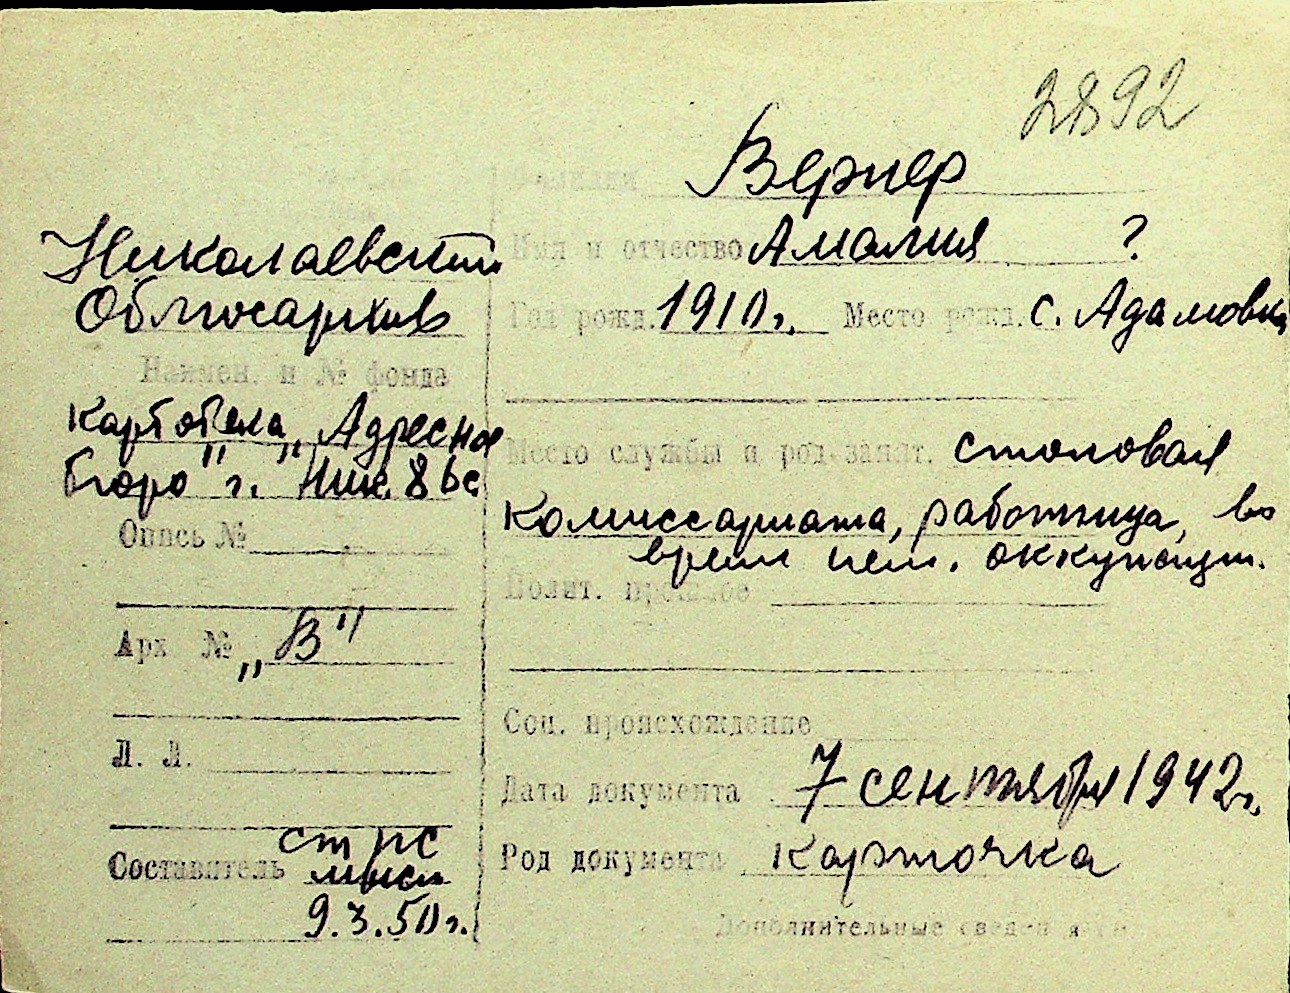 2892
Николаевский
Облгосархив
Наимен. и № фонда
Картотека „Адресное
бюро" г. Ник.
Опись №
Арх № „В"
Л. Л.
Составитель
9.3.50г.
Фамилия Вернер
Имя и отчество Амалия ?
Год рожд. 1910г. Место рожд. с. Адамовка
Место службы и род занят. столовая
Комиссариата, работница, во
время нем. оккупации.
Полит. прошлое
Соц. происхождение
Дата документа 7 сентября 1942г.
Род документа карточка
Дополнительные сведения